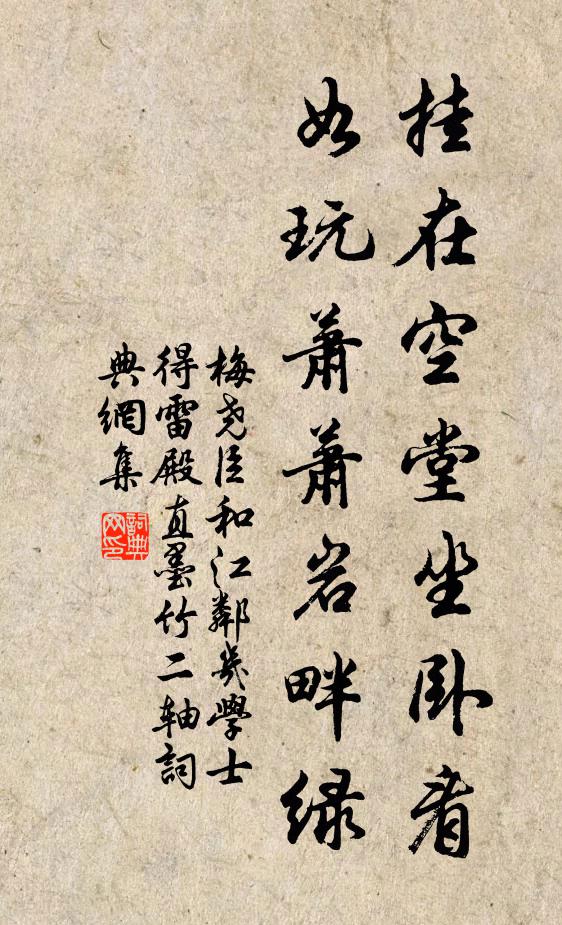 挂在空堂坐卧看
如玩萧萧岩畔绿
梅尧臣和江鄰幾學士
得雷殿直墨竹二轴詞
典網集
詞典網印